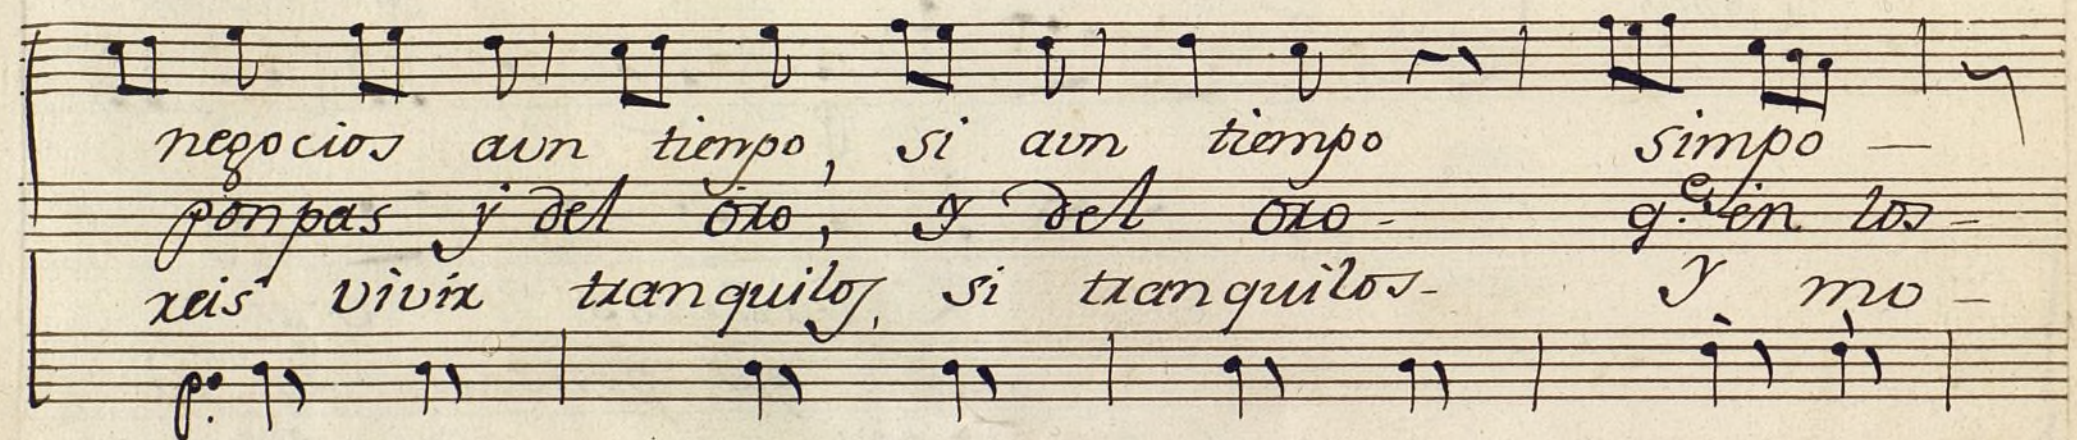 negocios aun tienpo, si aun tiempo simpo —
ponpas y del oro, y del oro - q.e en los -
reis vivir tranquilos, si tranquilos - y mo -
p.